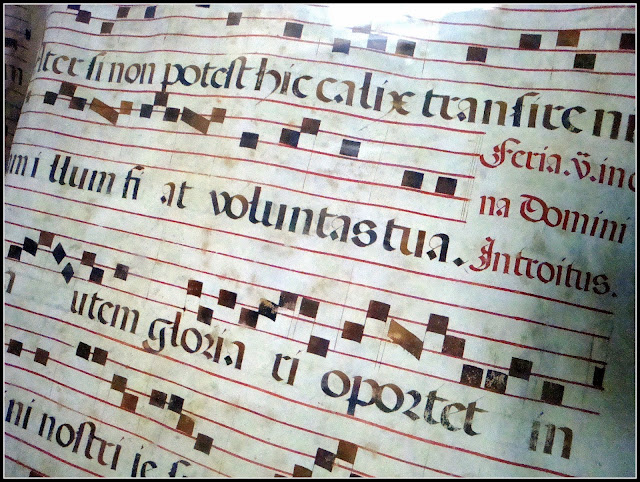 ater si non potest hic calix transire ni
Feria. v. in c
na Domini
Introitus.
m illum fi at voluntas tua.
utem gloria ri oportet in
ini nostri je